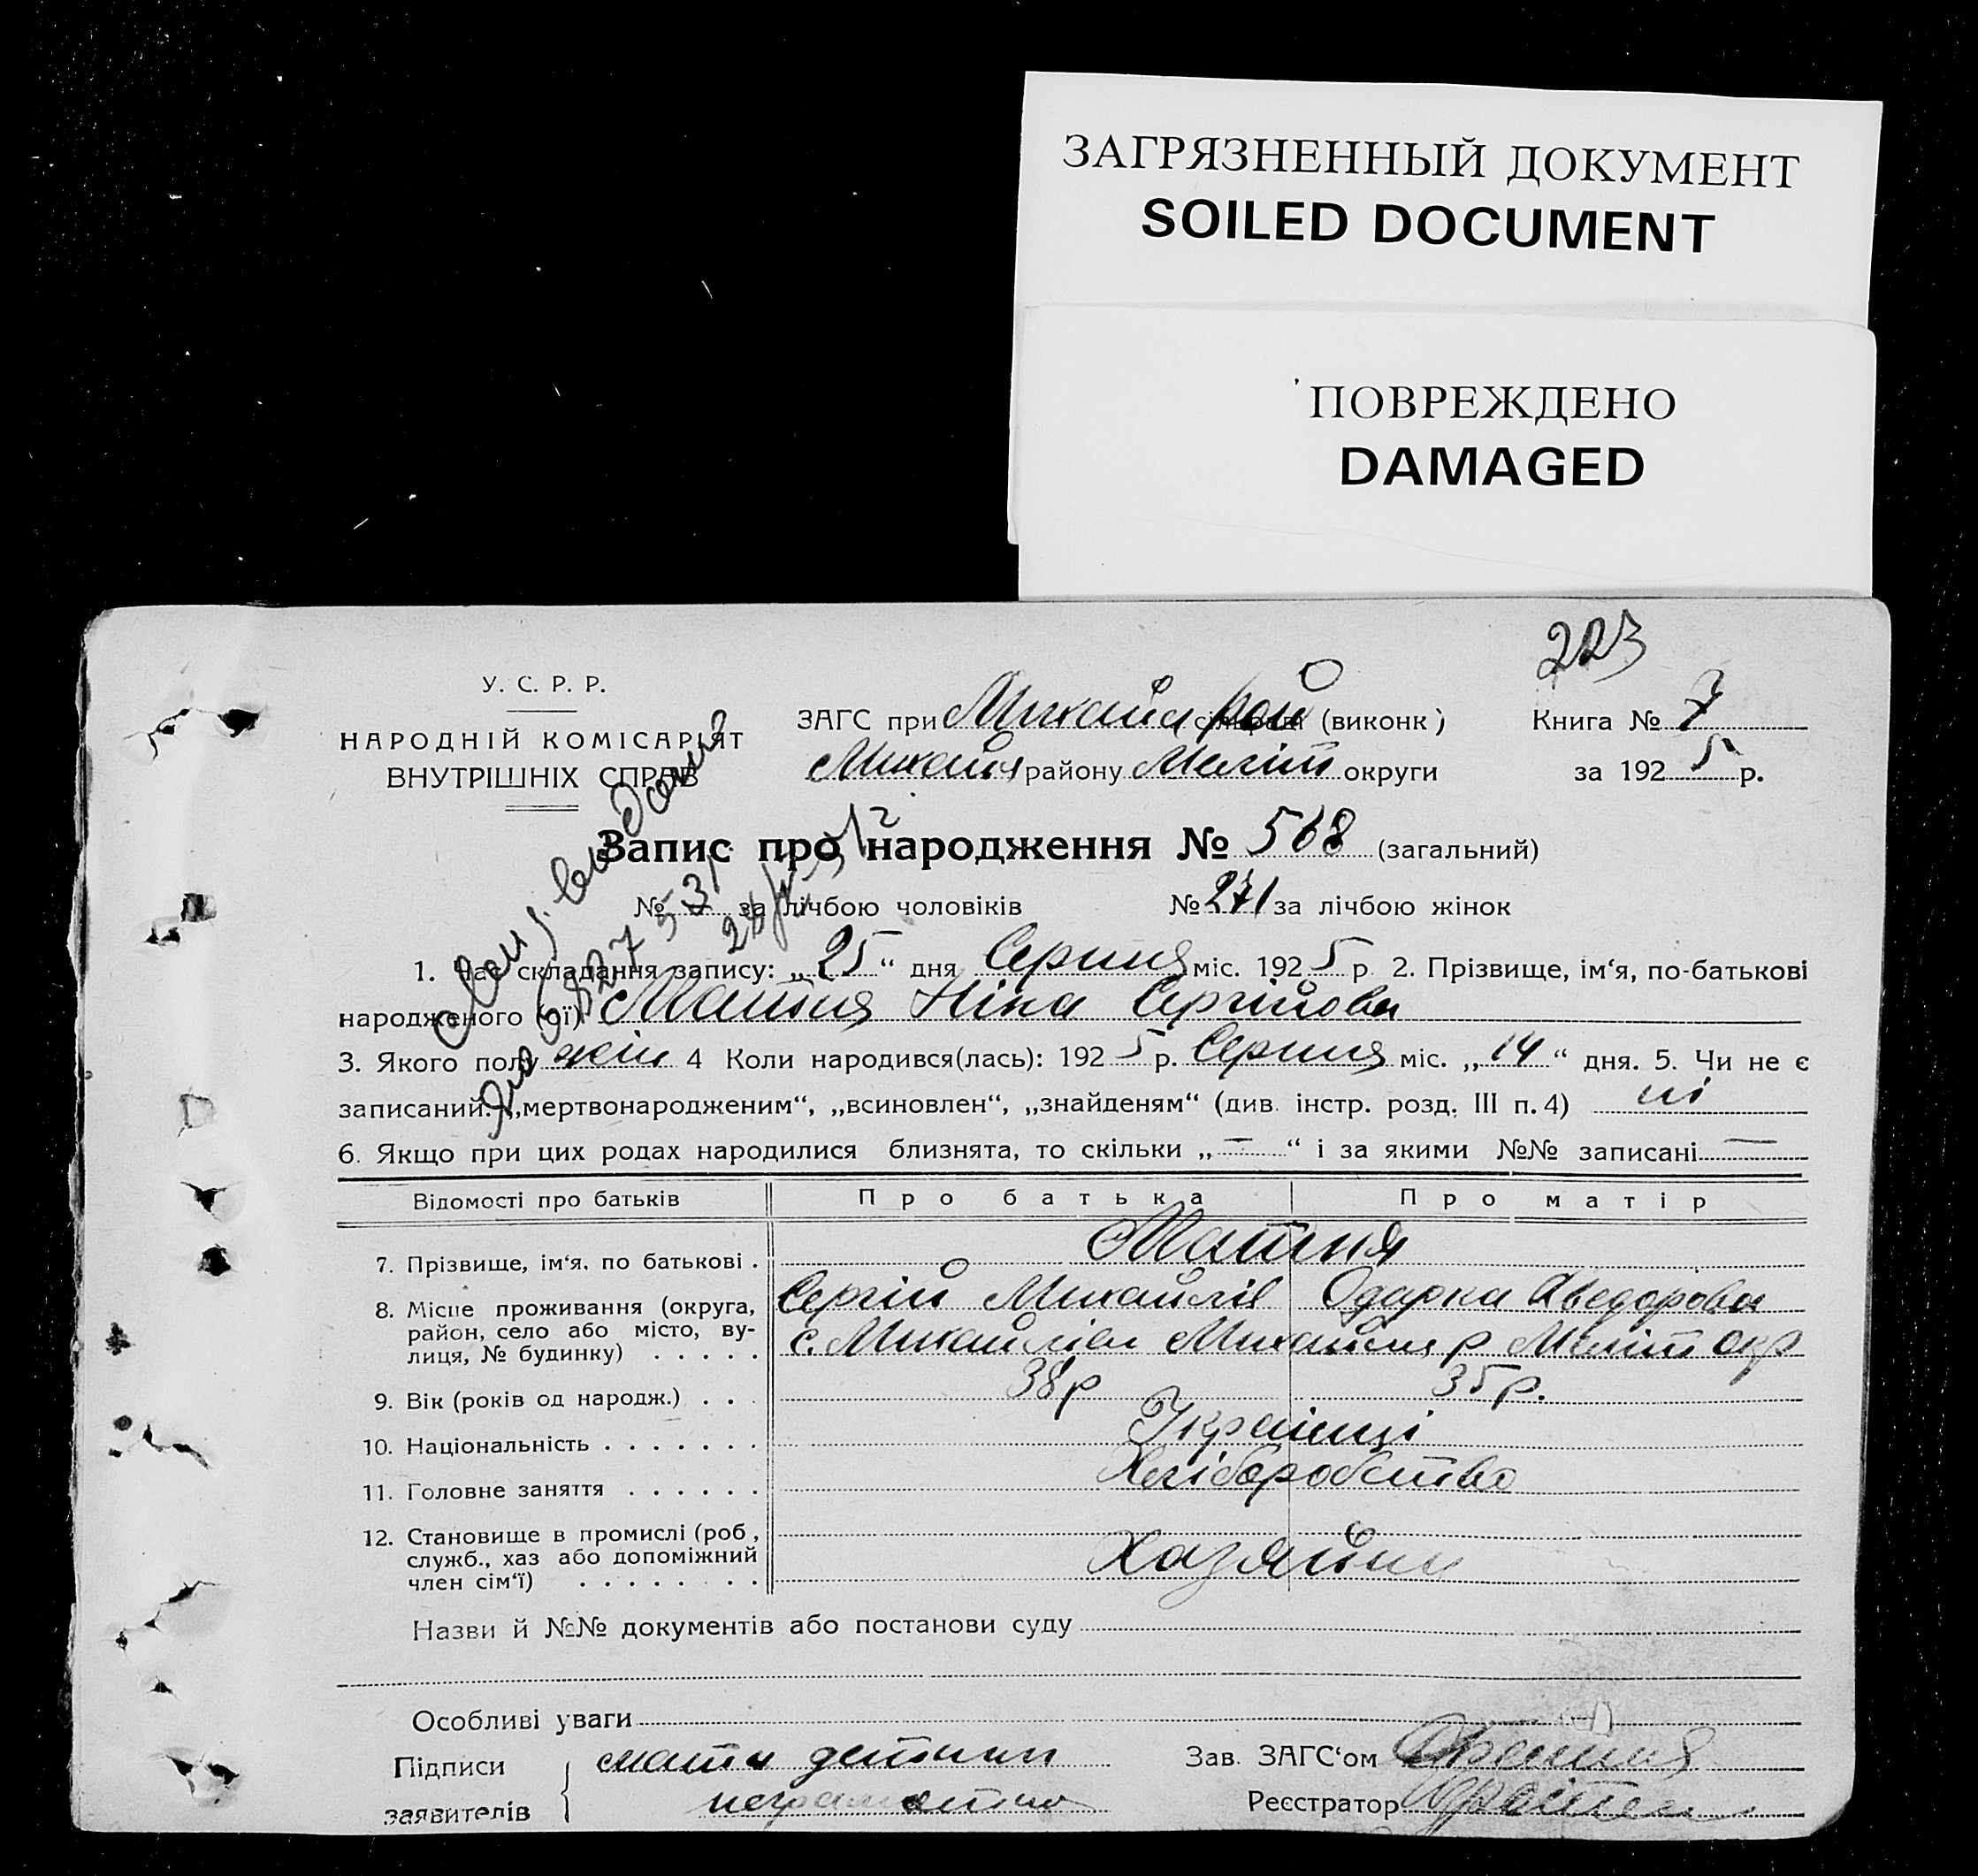 ЗАГРЯЗНЕННЫЙ ДОКУМЕНТ
SOILED DOCUMENT
ПОВРЕЖДЕНО
DAMAGED
223
У. С. Р. Р.
НАРОДНІЙ КОМІСАРІЯТ
ВНУТРІШНІХ СПРАВ
ЗАГС при Михайл рай (виконк) Книга № 7
Михайл району Меліт округи за 1925 р.
Запис про народження № 568 (загальний)
№ за лічбою чоловіків № 271 за лічбою жінок
1. Час складання запису: „25“ дня Серпня міс. 1925 р. 2. Прізвище, ім‘я, по-батькові
народженого (ої) Матня Ніна Сергійовна
3. Якого полу жін 4 Коли народився(лась): 1925 р. Серпня міс. „14“ дня. 5. Чи не є
записаний: „мертвонародженим“, „всиновлен“, „знайденям“ (див. інстр. розд. III п. 4) ні
6. Якщо при цих родах народилися близнята, то скільки „—“ і за якими №№ записані —
Відомості про батьків Про батька Про матір
7. Прізвище, ім‘я. по батькові . Матня
Сергій Михайлів Одарка Хведоровна
8. Місце проживання (округа,
район, село або місто, ву-
лиця, № будинку) . . . . . с. Михайлівка Михайл р Меліт окр
9. Вік (років од народж.) . . . 38 р 35 р.
10. Національність . . . . . . . Українці
11. Головне заняття . . . . . . Хліборобство
12. Становище в промислі (роб,
служб., хаз або допоміжний
член сім‘ї) . . . . . . . . Хазяйни
Назви й №№ документів або постанови суду
Особливі уваги
Підписи мати дитини Зав. ЗАГС‘ом
заявителів неграмотна Реєстратор